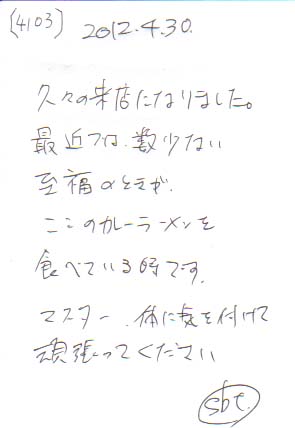 (4103) 2012.4.30.
久々の来店になりました。
最近では、数少ない
至福のときが、
ここのカレーラーメンを
食べている時です。
マスター、体に気を付けて
頑張ってください
sbt.